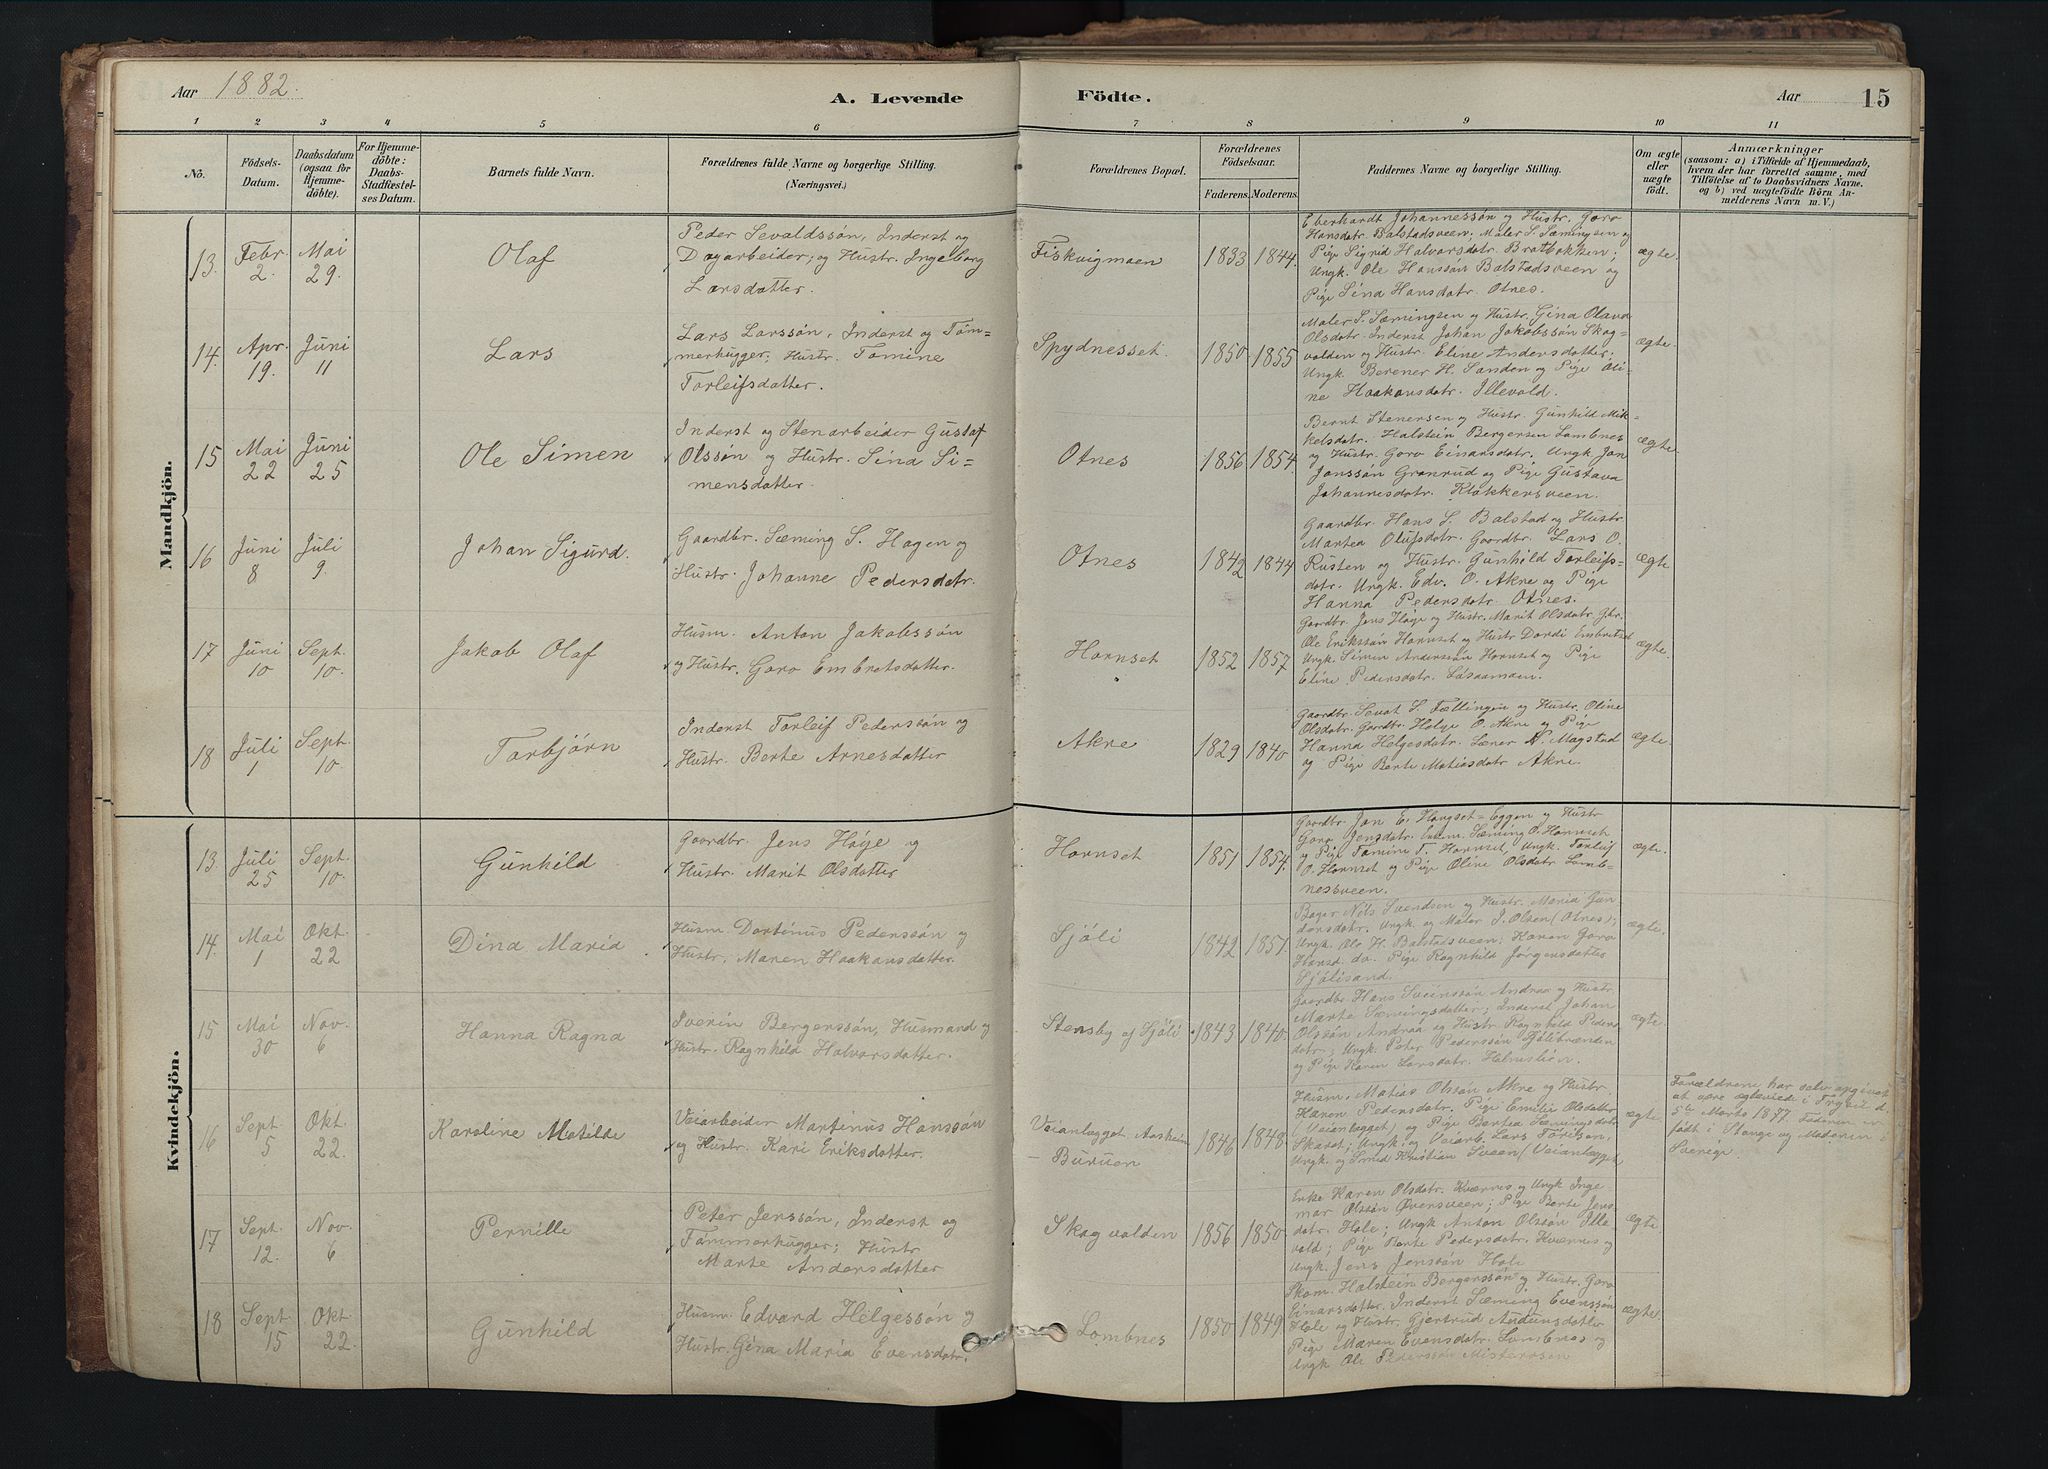 Aar 1882.
A. Levende
Födte.
Aar
15
1
2
3
4
5
6
7
8
9
10
11
No.
Födsels-
Datum.
Daabsdatum
(ogsaa for
Hjemme-
döbte).
For Hjemme-
döbte:
Daabs-
Stadfæstel-
ses Datum.
Barnets fulde Navn.
Forældrenes fulde Navne og borgerlige Stilling.
(Næringsvei.)
Forældrenes Bopæl.
Forældrenes
Födselsaar.
Faderens.
Moderens.
Faddernes Navne og borgerlige Stilling.
Om ægte
eller
uægte
födt.
Anmærkninger
(saasom: a) i Tilfælde af Hjemmedaab,
hvem der har forrettet samme, med
Tilföielse af to Daabsvidners Navne,
og b) ved uægtefödte Börn An-
melderens Navn m. V.)
Mandkjön.
13.
Febr.
2.
Mai
29.
Olaf
Peder Sevaldssön, Inderst og
Dagarbeider, og Hustr. Ingeborg
Larsdatter.
Fiskvigmoen
1833
1844.
Eberhardt Johannessön og Hustr. Goro
Hansdatr. Balstadsveen. Maler S. Sæmingsen og
Pige Sigrid Halvorsdatr. Bratbakken;
Ungk. Ole Hanssön Balstadsveen og
Pige Sina Hansdatr. Otnes.
ægte.
14.
Apr.
19.
Juni
11
Lars
Lars Larssön, Inderst og Töm-
merhugger; Hustr. Tomine
Torleifsdatter.
Spydnesset.
1850.
1855
Maler S. Sæmingsen og Hustr. Gina Olava
Olsdatr. Inderst Johan Jakobssön Skog-
volden og Hustr. Eline Andersdatter;
Ungk. Berener H. Sanden og Pige Oli-
ne Haakonsdatr. Illevold.
ægte.
15
Mai
22
Juni
25
Ole Simen
Inderst og Stenarbeider Gustaf
Olssön og Hustr. Sina Si-
mensdatter.
Otnes
1856.
1854.
Bernt Stenersen og Hustr. Gunhild Mik-
kelsdatr. Halstein Bergersen Lombnes
og Hustr. Goro Einarsdatr. Ungk. Jon
Jonssön Granrud og Pige Gustava
Johannesdatr. Klokkersveen.
ægte
16
Juni
8
Juli
9.
Johan Sigurd.
Gaardbr. Sæming S. Hagen og
Hustr. Johanne Pedersdatr.
Otnes
1842
1844
Gaardbr. Hans S. Balstad og Hustr.
Martea Olufsdatr. Gaardbr. Lars O.
Rusten og Hustr. Gunhild Torleifs-
datr. Ungk. Edv. O. Akre og Pige
Hanna Pedersdatr. Otnes.
ægte
17
Juni
10
Sept.
10.
Jakob Olaf
Husm. Anton Jakobssön
og Hustr. Goro Embretsdatter.
Hornset
1852
1857
Gaardbr. Jens Höye og Hustr. Marit Olsdatr. Gbr.
Ole Erikssön Hornset og Hustr Dordi Embretsd
Ungk. Simen Anderssön Hornset og Pige
Eline Pedersdatr. Løsaamoen.
ægte.
18
Juli
1
Sept.
10.
Torbjörn
Inderst Torleif Pederssön og
Hustr. Berte Arnesdatter
Akre
1829
1840
Gaardbr. Sevat S. Fællingen og Hustr. Oline
Olsdatr. Gardbr. Helge O. Akre og Pige
Hanna Helgesdatr. Lærer N. Magstad
og Pige Berte Matiasdatr Akre.
ægte.
Kvindekjön.
13.
Juli
25
Sept.
10
Gunhild
Gaardbr. Jens Höye og
Hustr. Marit Olsdatter
Hornset
1851
1854.
Gaardbr. Jon E. Haugset-Eggen og Hustr
Goro Jensdatr. Sæming O. Hornset
og Pige Tomine T. Hornset, Ungk. Torleif
O. Hornset og Pige Oline Olsdatr. Lomb-
nessveen.
ægte.
14.
Mai
1
Okt.
22
Dina Maria
Husm. Dortinus Pederssön og
Hustr. Maren Haakonsdatter.
Sjöli
1842
1851.
Bager Nils Svendsen og Hustr. Maria Gun-
dorsdatr. Ungk. og Maler J. Olsen (Otnes);
Ungk. Ole H. Balstadsveen; Karen Goro
Hansd. do. Pige Ragnhild Jörgensdatter
Sjölisand.
ægte.
15
Mai
30
Nov.
6
Hanna Ragna
Iverin Bergerssön, Husmand og
Hustr. Ragnhild Halvorsdatter.
Stensby af Sjöli
1843
1840
Gaardbr. Hans Sveinssön Andraa og Hustr.
Marte Sæmingsdatter; Inderst Johan
Olssön Andraa og Hustr. Ragnhild Peders-
datr.; Ungk. Peter Pederssön Sjölibrænden
og Pige Karen Larsdatr. Holmslien.
ægte.
16
Sept.
5
Okt.
22.
Karoline Matilde
Veiarbeider Martinus Hanssön
og Hustr. Kari Eriksdatter.
Veianlægget Aasheim
- Buruen
1846
1848.
Husm. Matias Olssön Akre og Hustr.
Karen Pedersdatr. Pige Emilie Olsdatter
(Veianlægget) og Pige Bertea Sæmingsdatr.
Skaset; Ungk. og Veiarb. Lars
Ungk. og Smed Kristian Sveen (Veianlægget)
ægte
Forældrene har selv opgivet
at være ægteviede i Trysil d.
5te Marts 1877. Faderen er
födt i Stange og Moderen i
Sverige.
17
Sept.
12.
Nov.
6
Pernille
Peter Jenssön, Inderst og
Tömmerhugger; Hustr
Marte Andersdatter
Skogvolden
1856
1850.
Enke Karen Olsdatr. Kværnes og Ungk Inge-
mar Olssön Övensveen; Pige Berte Jens-
datr. Hole; Ungk Anton Olssön Ille-
vold; Pige Berte Pedersdatr. Kværnes og
Ungk. Jens Jenssön Hole
ægte
18
Sept.
15
Okt.
22.
Gunhild
Husm. Edvard Helgessön og
Hustr. Gina Maria Evensdatr.
Lombnes
1850
1849
Skom. Halstein Bergerssön og Hustr. Goro
Einarsdatter. Inderst Sæming Evenssön
Hole og Hustr. Gjertrud Amundsdatter
Pige Maren Evensdatr. Lombnes og
Ungk Ole Pederssön Misteroseen
ægte